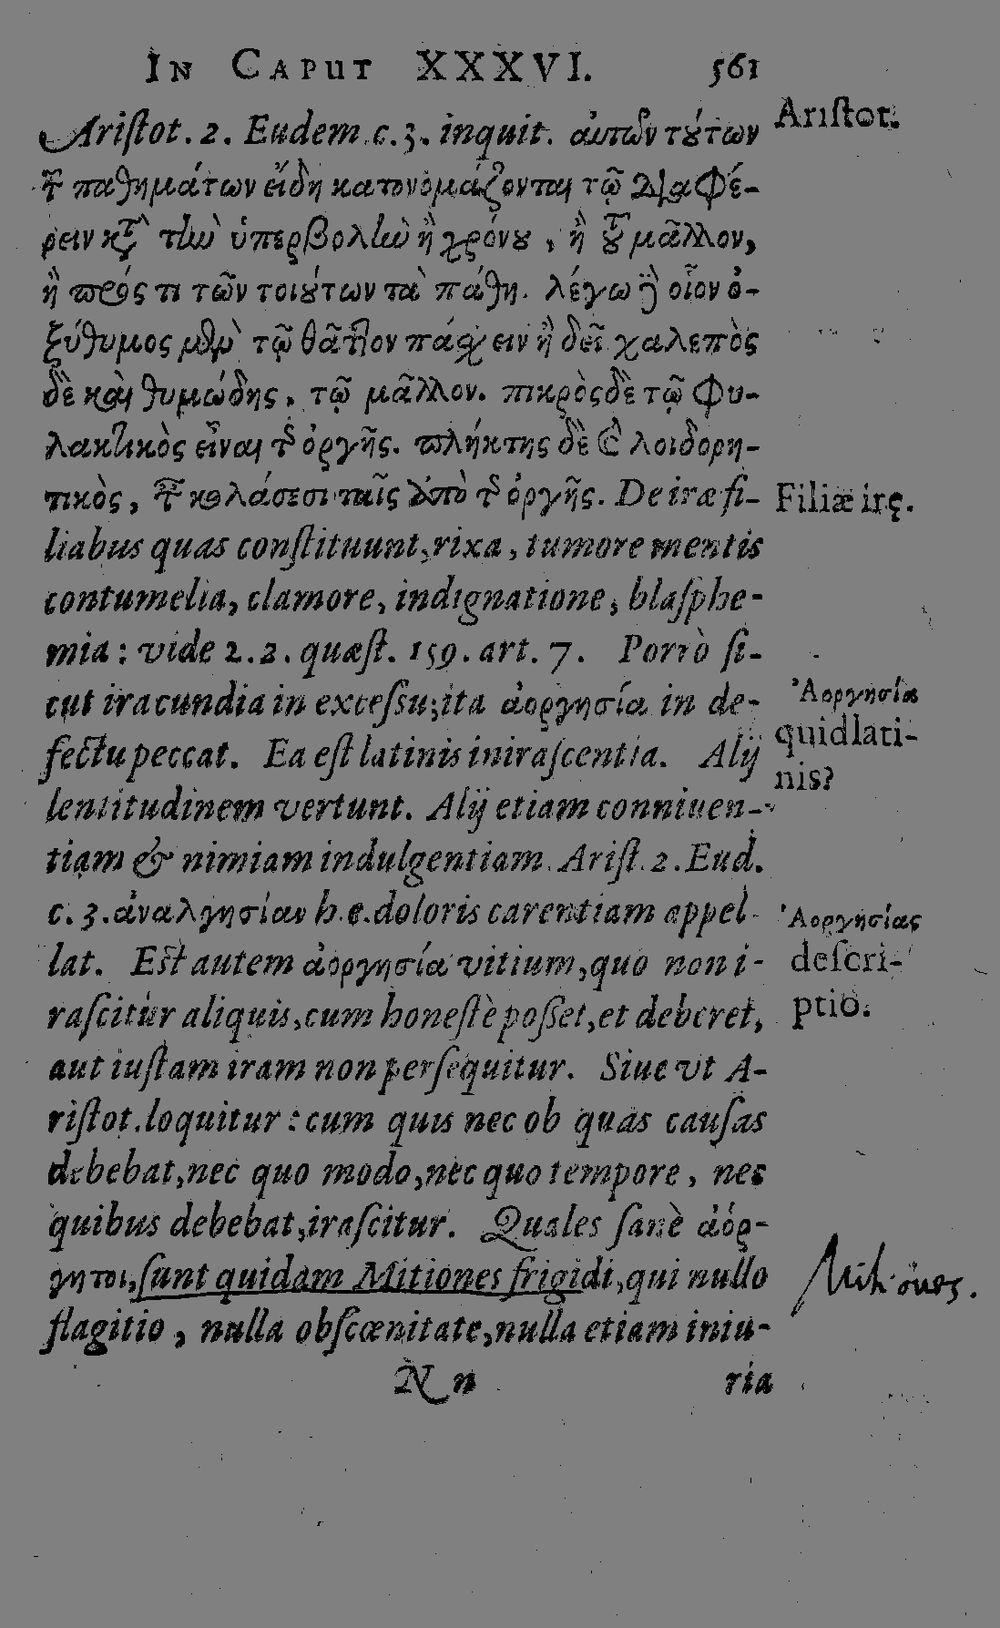 IN CAPUT XXXVI. 561
Aristot. 2. Eudem. c. 3. inquit. αὐτῶν τούτων
Aristot.
τῶν παθημάτων εἴδη κατονομάζονται τῷ διαφέ-
ρειν κατὰ τὴν ὑπερβολὴν ἢ χρόνου, ἢ τοῦ μᾶλλον,
ἢ πρός τι τῶν τοιούτων τὰ πάθη. λέγω δὲ οἷον ὀ-
ξύθυμος μὲν τῷ θᾶττον πάσχειν ἢ δεῖ χαλεπὸς
δὲ καὶ θυμώδης, τῷ μᾶλλον. πικρὸς δὲ τῷ φυ-
λακτικὸς εἶναι τῆς ὀργῆς. πλήκτης δὲ καὶ λοιδορη-
τικὸς, ταῖς κολάσεσι ταῖς ἀπὸ τῆς ὀργῆς. De iræ fi-
Filiæ irę.
liabus quas constituunt, rixa, tumore mentis
contumelia, clamore, indignatione, blasphe-
mia: vide 2. 2. quæst. 159. art. 7. Porrò si-
cut iracundia in excessu; ita ἀοργησία in de-
Ἀοργησία
fectu peccat. Ea est latinis inirascentia. Alij
quid lati-
nis?
lentitudinem vertunt. Alij etiam conniuen-
tiam & nimiam indulgentiam. Arist. 2. Eud.
c. 3. ἀναλγησίαν h. e. doloris carentiam appel-
Ἀοργησίας
lat. Est autem ἀοργησία vitium, quo non i-
descri-
rascitur aliquis, cum honestè posset, et deberet,
ptio.
aut iustam iram non persequitur. Siue vt A-
ristot. loquitur: cum quis nec ob quas causas
debebat, nec quo modo, nec quo tempore, nec
quibus debebat, irascitur. Quales sanè ἀόρ-
γητοι, sunt quidam Mitiones frigidi, qui nullo
Mitiones.
flagitio, nulla obscœnitate, nulla etiam iniu-
N n ria